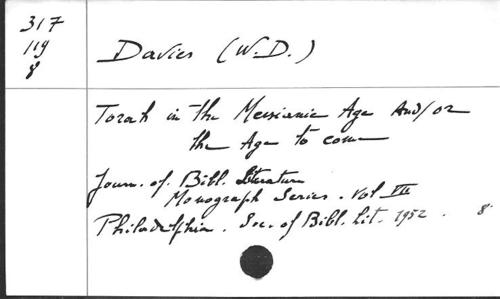 317
119
8
Davies (W.D.)
Torah in the Messianic Age And/or
the Age to come
Journ. of. Bibl. Literature
Monograph Series. Vol VII
Philadelphia. Soc. of Bibl. Lit. 1952. 8°